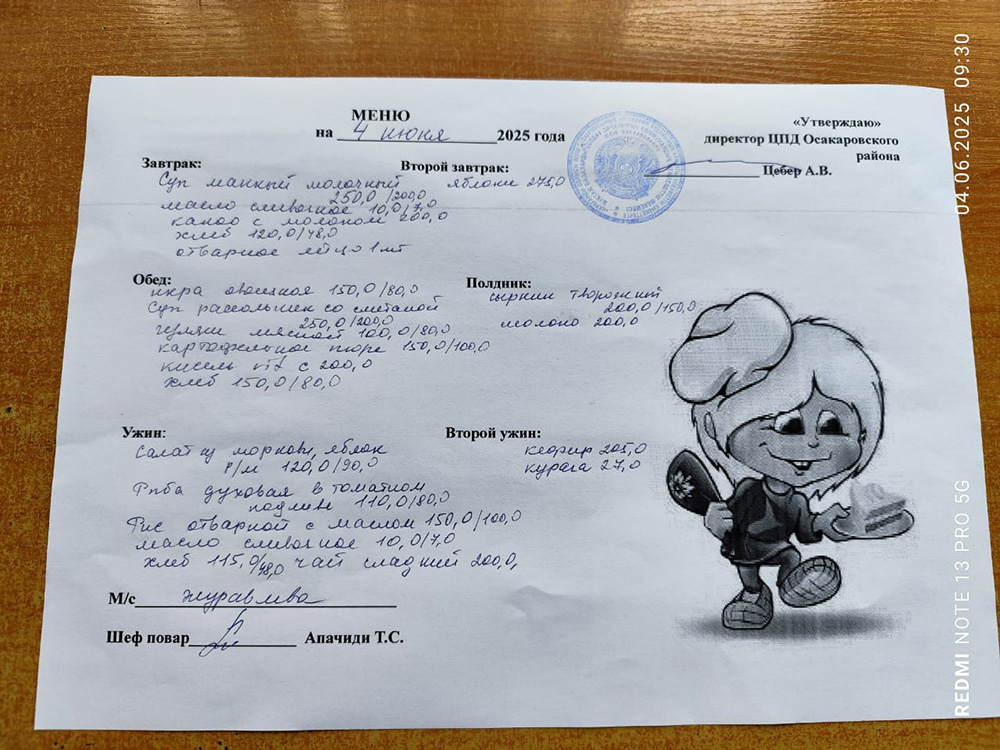 МЕНЮ
на 4 июня 2025 года
«Утверждаю»
директор ЦПД Осакаровского
района
Цебер А.В.
Завтрак:
Суп манный молочный
250,0/200,0
масло сливочное 10,0/7,0
какао с молоком 200,0
хлеб 120,0/48,0
отварное яйцо 1шт
Второй завтрак:
яблоки 275,0
Обед:
икра овощная 150,0/80,0
Суп рассольник со сметаной
250,0/200,0
гуляш мясной 100,0/80,0
картофельное пюре 150,0/100,0
кисель vit с 200,0
хлеб 150,0/80,0
Полдник:
сырники творожный
200,0/150,0
молоко 200,0
Ужин:
Салат из моркови, яблок
р/м 120,0/90,0
Рыба духовая в томатном
подливе 110,0/80,0
Рис отварной с маслом 150,0/100,0
масло сливочное 10,0/7,0
хлеб 115,0/48,0 чай сладкий 200,0,
Второй ужин:
кефир 205,0
курага 27,0
М/с Журавлева
Шеф повар Апачиди Т.С.
REDMI NOTE 13 PRO 5G
04.06.2025 09:30